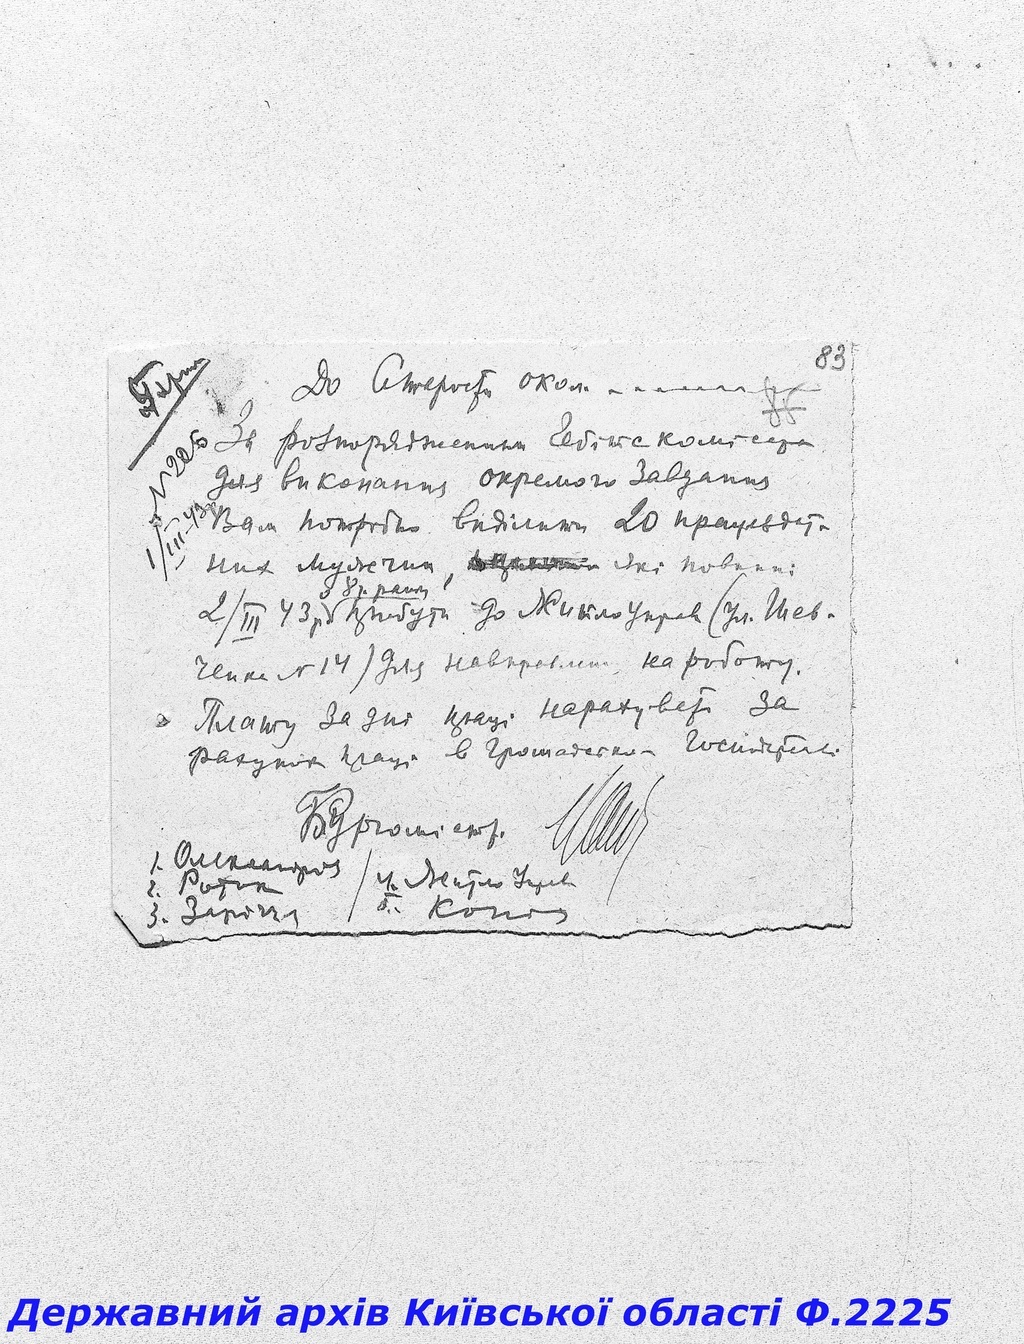 83
До Старости окол.
За розпорядженням Гебітскомісара
для виконання окремого завдання
Вам потрібно виділити 20 працездат-
них мужчин, які повинні
о 8 г. рань
2/III 43 р. прибути до Житлоуправ (ул. Шев-
ченка № 14) для направлення на роботу.
Плату за дні праці нарахувати за
рахунок праці в Громадських Господарствах
Бургомістр.
1. Олександрія
2. Роток
3. Заріччя
4. Житло Управ
5. Копія
№ 226
1/III-43 р.
Державний архів Київської області Ф.2225